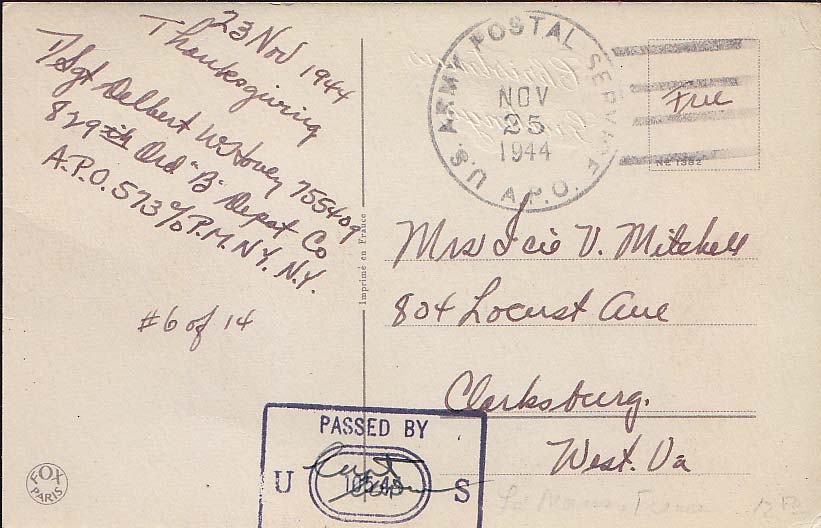 23 Nov 1944
Thanksgiving
T/Sgt Delbert W. Hovey 755409
829th Ord "B" Depot Co
A.P.O. 573 c/o P.M. N.Y. N.Y.
#6 of 14
FOX
PARIS
Imprimé en France
U.S. ARMY POSTAL SERVICE
A.P.O.
NOV
25
1944
Free
No 1382
Christmas
Mrs Icie V. Mitchell
804 Locust Ave
Clarksburg.
West. Va
PASSED BY
U S
France